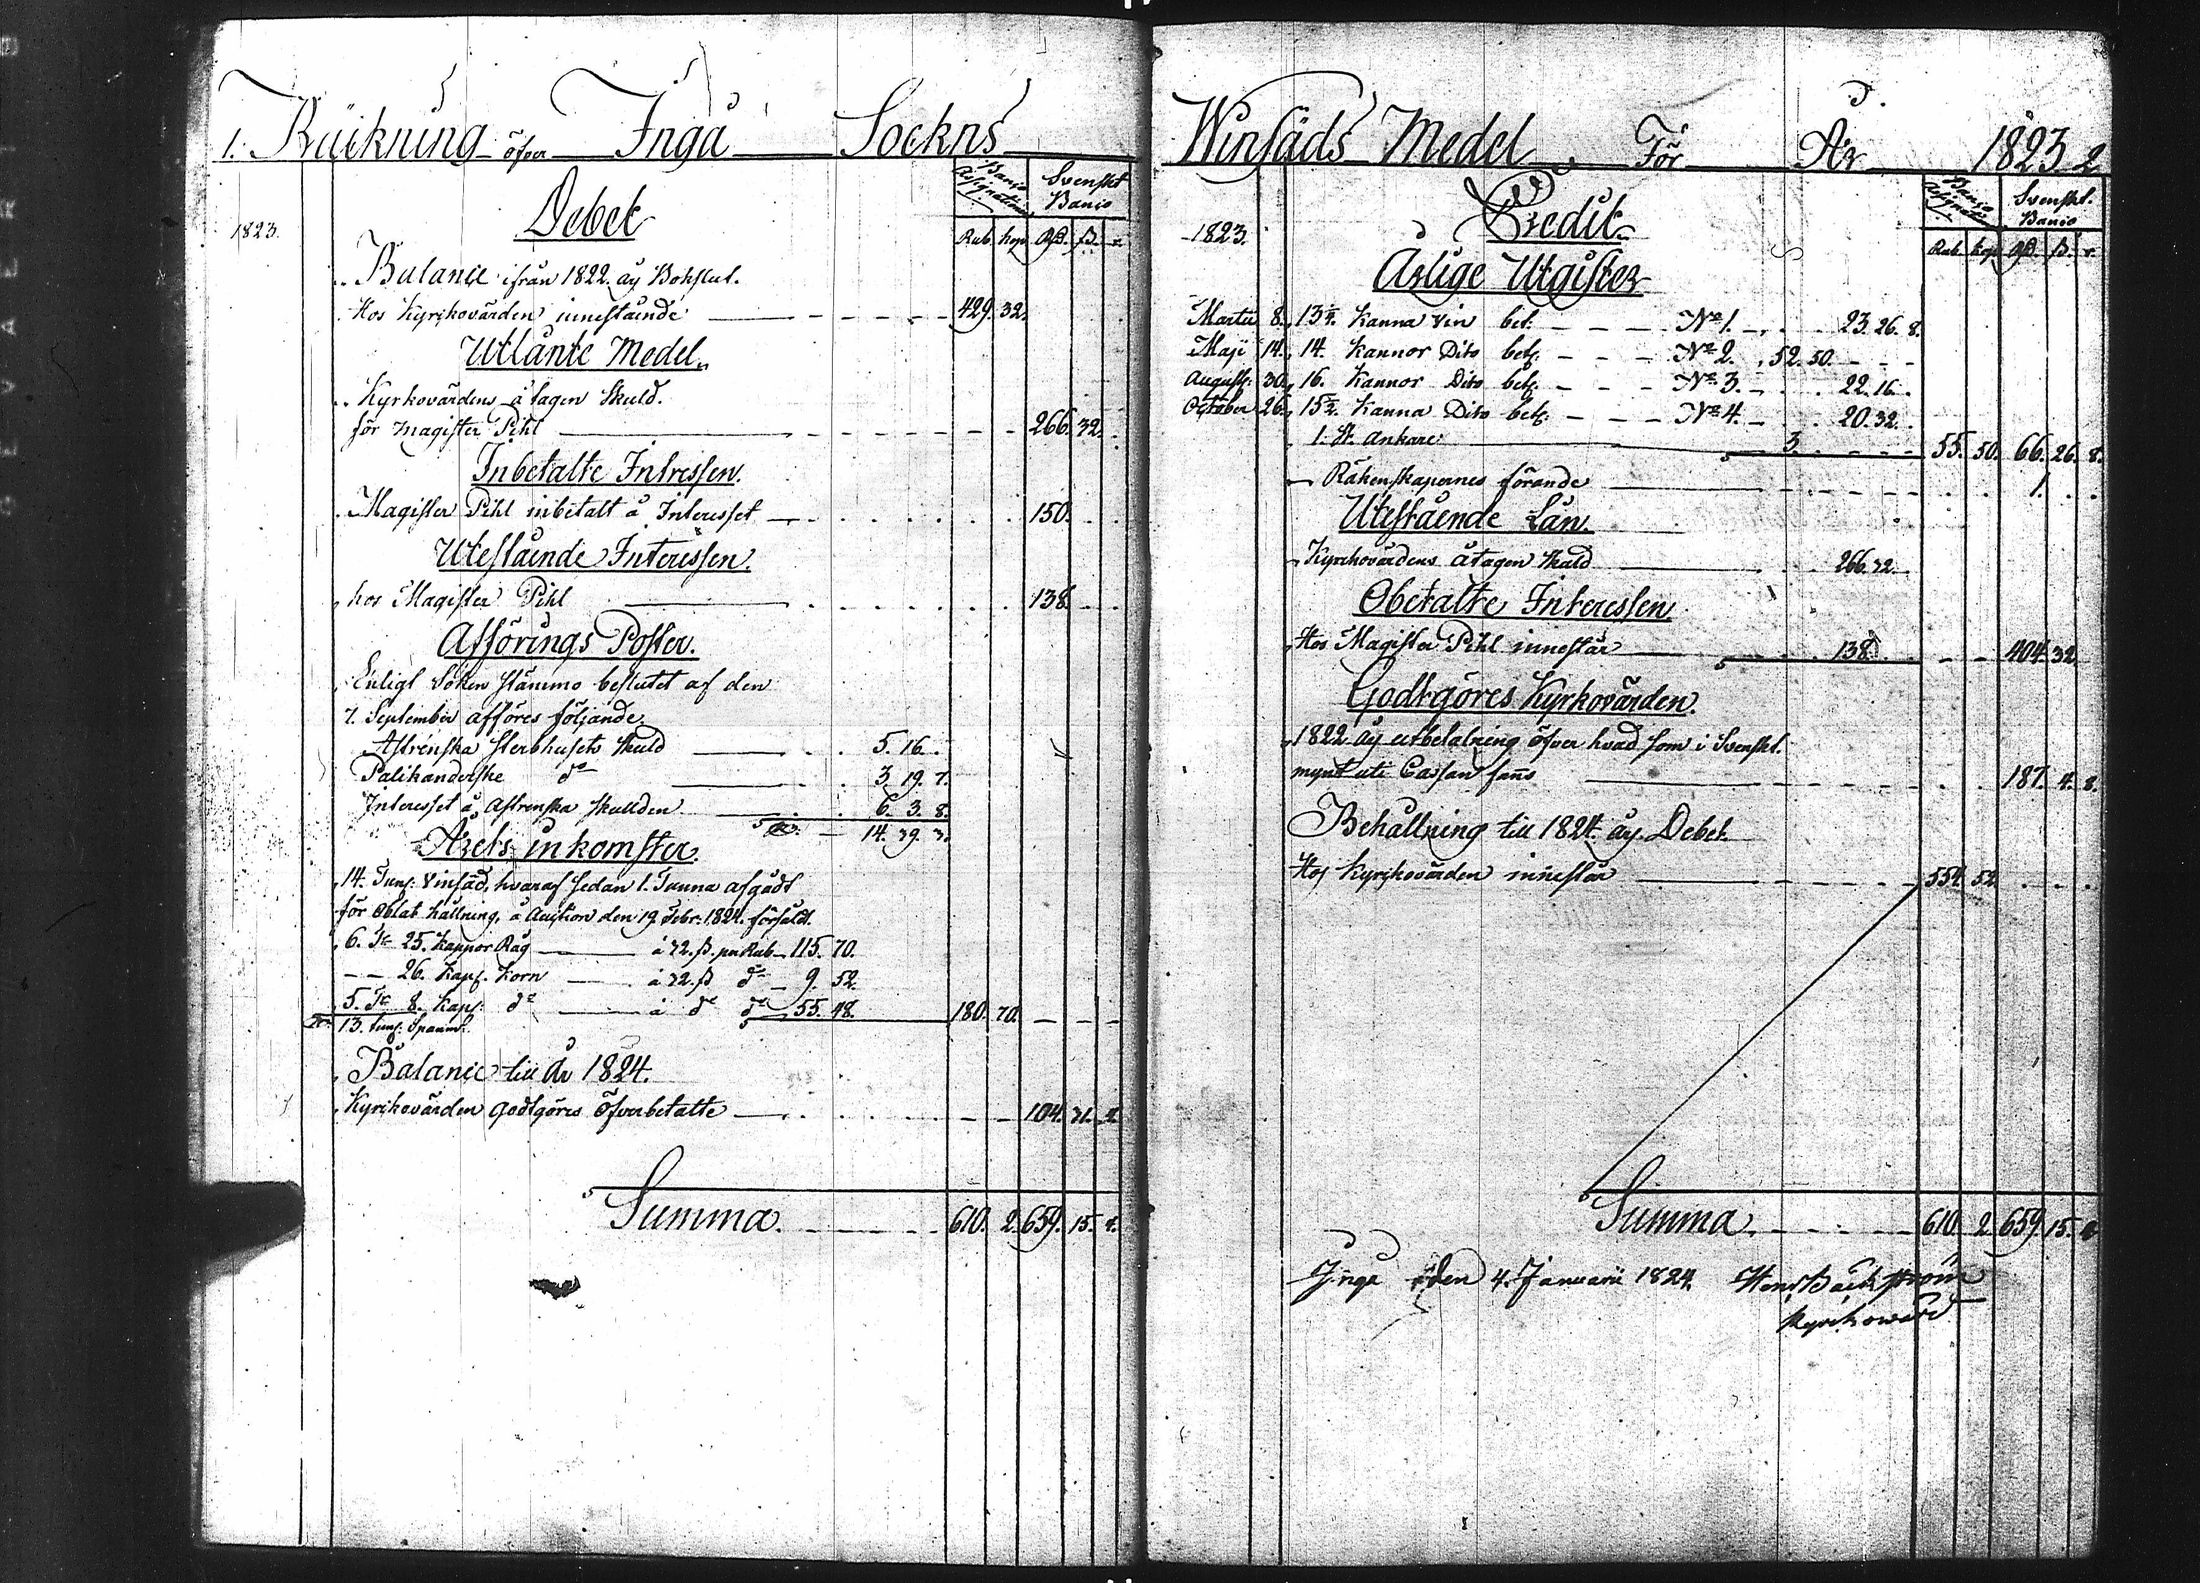 1. Räkning öfver Ingå Sockns
Banco Assignationer Svenskt Banco
Debet
1823. Rub. kop. Rd. ß. r.
Balance ifrån 1822. åg Bokslut.
Hos Kyrkovärden innestående 429. 32.
Utlånte Medel.
Kyrkovärdens åtagen Skuld.
för Magister Pihl 266. 32.
Inbetalte Intressen.
Magister Pihl inbetalt å Interesset 150.
Utestående Interessen.
hos Magister Pihl 138.
Afförings Poster.
Enligt Soken stämmo beslutet af den
7. September afföres följande
Astrénska sterbhusets Skuld 5. 16.
Palikanderske do 3. 19. 7.
Interesset å Astrenska skullden 6. 3. 8.
14. 39. 3.
Årets inkomster.
14. Tun: Vinsäd, hvaraf sedan 1. Tunna afgådt
för Oblat hållning, å Auction den 19 Febr: 1824. försåldt.
6. Tr 25. Kappor Råg à 72. ß. per Rub 115. 70.
26. Kap. Korn à 72. ß do 9. 52.
5. Tr 8. Kap: do à do do 55. 48. 180. 70.
13. tun: Spanml.
Balance till År 1824.
Kyrkovärden godtgöres Öfverbetalte 104. 31. 4.
Summa. 610. 2. 659. 15. 4.
Winsäds Medel För År 1823 2
Banco Assignationer Svenskt. Banco
Credit
1823. Rub. kop. Rd. ß. r.
Årlige Utgifter
Martii 8. 13½ Kanna vin bet: No 1. 23. 26. 8.
Maji 14. 14. Kannor Dito bet: No 2. 52. 50.
August: 30. 16. Kannor Dito bet: No 3. 22. 16.
October 26. 15½ Kanna Dito bet: No 4. 20. 32.
1. St. Ankare 3. 55. 50. 66. 26. 8.
Räkenskapernes förande 1.
Utestående Lån.
Kyrkovärdens åtagen Skuld 266. 32.
Obetalte Interessen.
Hos Magister Pihl innestår 138. 404. 32.
Godtgöres Kyrkovärden.
1822 åg utbetalning öfver hvad som i Svenskt.
mynt uti Cassan fans 187. 4. 8.
Behållning till 1824. åg. Debet.
Hos Kyrkovärden innestår 554. 52
Summa 610. 2. 659. 15. 4
Inga den 4. Januarii 1824. Hend Bäckström
Kyrckowärd